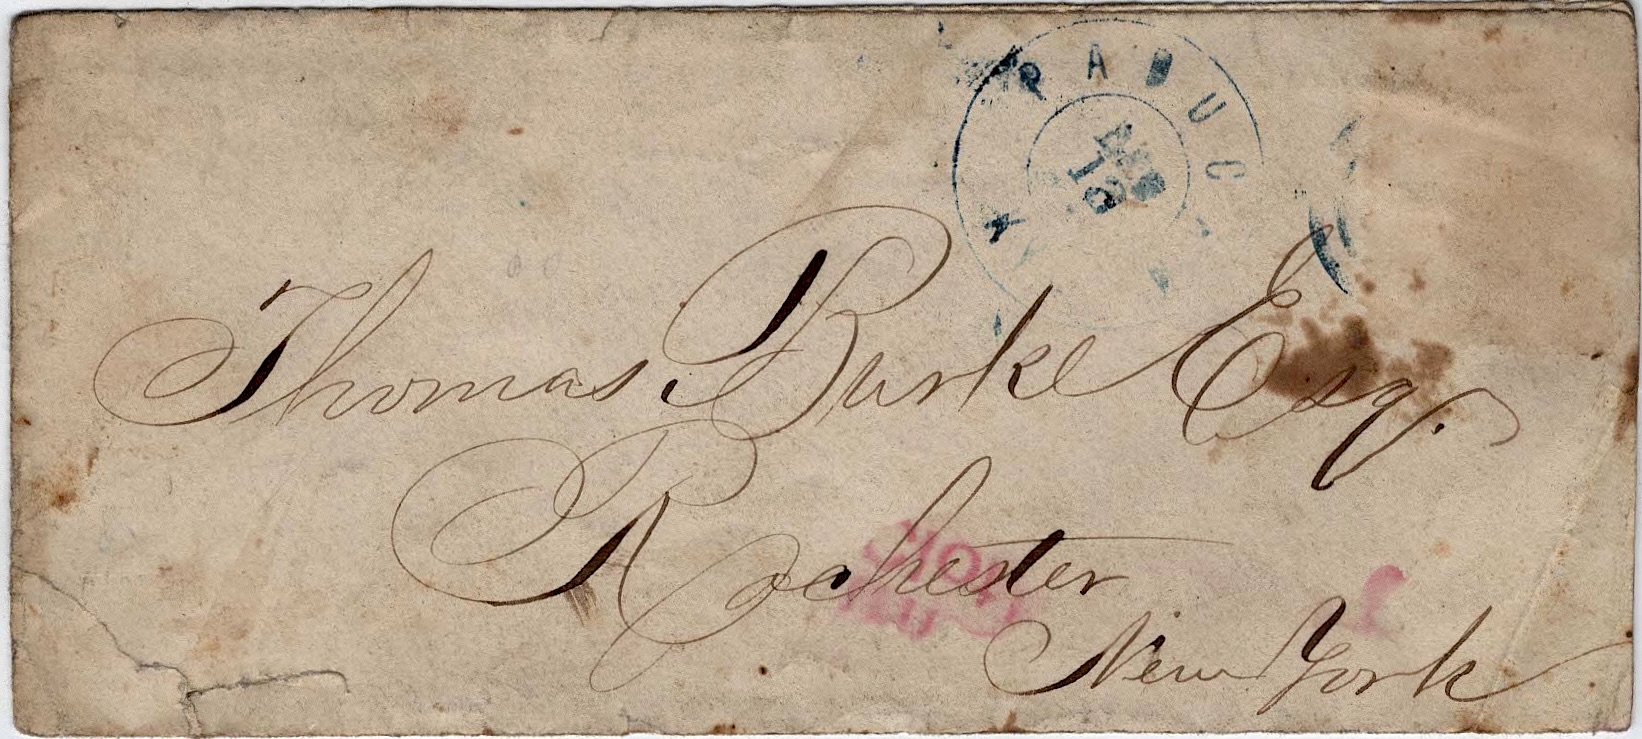 PADUC
Thomas Burke Esq.
Rochester
New York